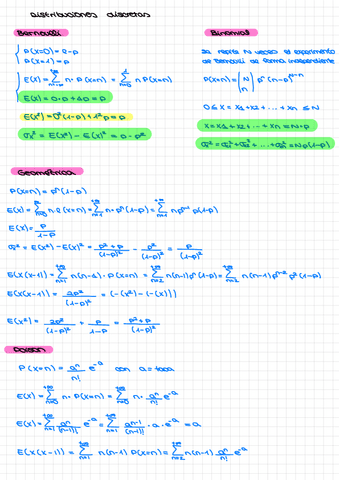 Distribuciones discretas
Bernoulli
P(X=0) = 1-p
P(X=1) = p
E(X) = Σ n· P(X=n) = Σ n P(X=n)
E(X) = 0·0 + 1·p = p
E(X²) = 0²(1-p) + 1² p = p
σx² = E(X²) - E(X)² = p - p²
Binomial
Se repite N veces el experimento
de Bernoulli de forma independiente
P(X=n) = (N n) pⁿ (1-p)ᴺ⁻ⁿ
0 ≤ X = X1+X2+ ... + Xn ≤ N
X = X1 + X2 + ... + Xn = N·p
σ² = σ1² + σ2² + ... + σn² = Np(1-p)
Geométrica
P(X=n) = pⁿ(1-p)
E(X) = Σ n·P(X=n) = Σ n·pⁿ(1-p) = Σ n pⁿ⁻¹ p(1-p)
E(X) = p/(1-p)
σ² = E(X²) - E(X)² = (p²+p)/(1-p)² - p²/(1-p)² = p/(1-p)²
E(X(X-1)) = Σ n(n-1)·P(X=n) = Σ n(n-1)pⁿ(1-p) = Σ n(n-1)pⁿ⁻² p²(1-p)
E(X(X-1)) = 2p²/(1-p)²
E(X²) = 2p²/(1-p)² + p/(1-p) = (p²+p)/(1-p)²
Poisson
P(X=n) = aⁿ/n! e⁻ᵃ con
E(X) = Σ n· P(X=n) = Σ n· aⁿ/n! e⁻ᵃ
E(X) = Σ aⁿ/(n-1)! e⁻ᵃ = Σ aⁿ⁻¹/(n-1)! · a · e⁻ᵃ = a
E(X(X-1)) = Σ n(n-1) P(X=n) = Σ n(n-1) aⁿ/n! e⁻ᵃ